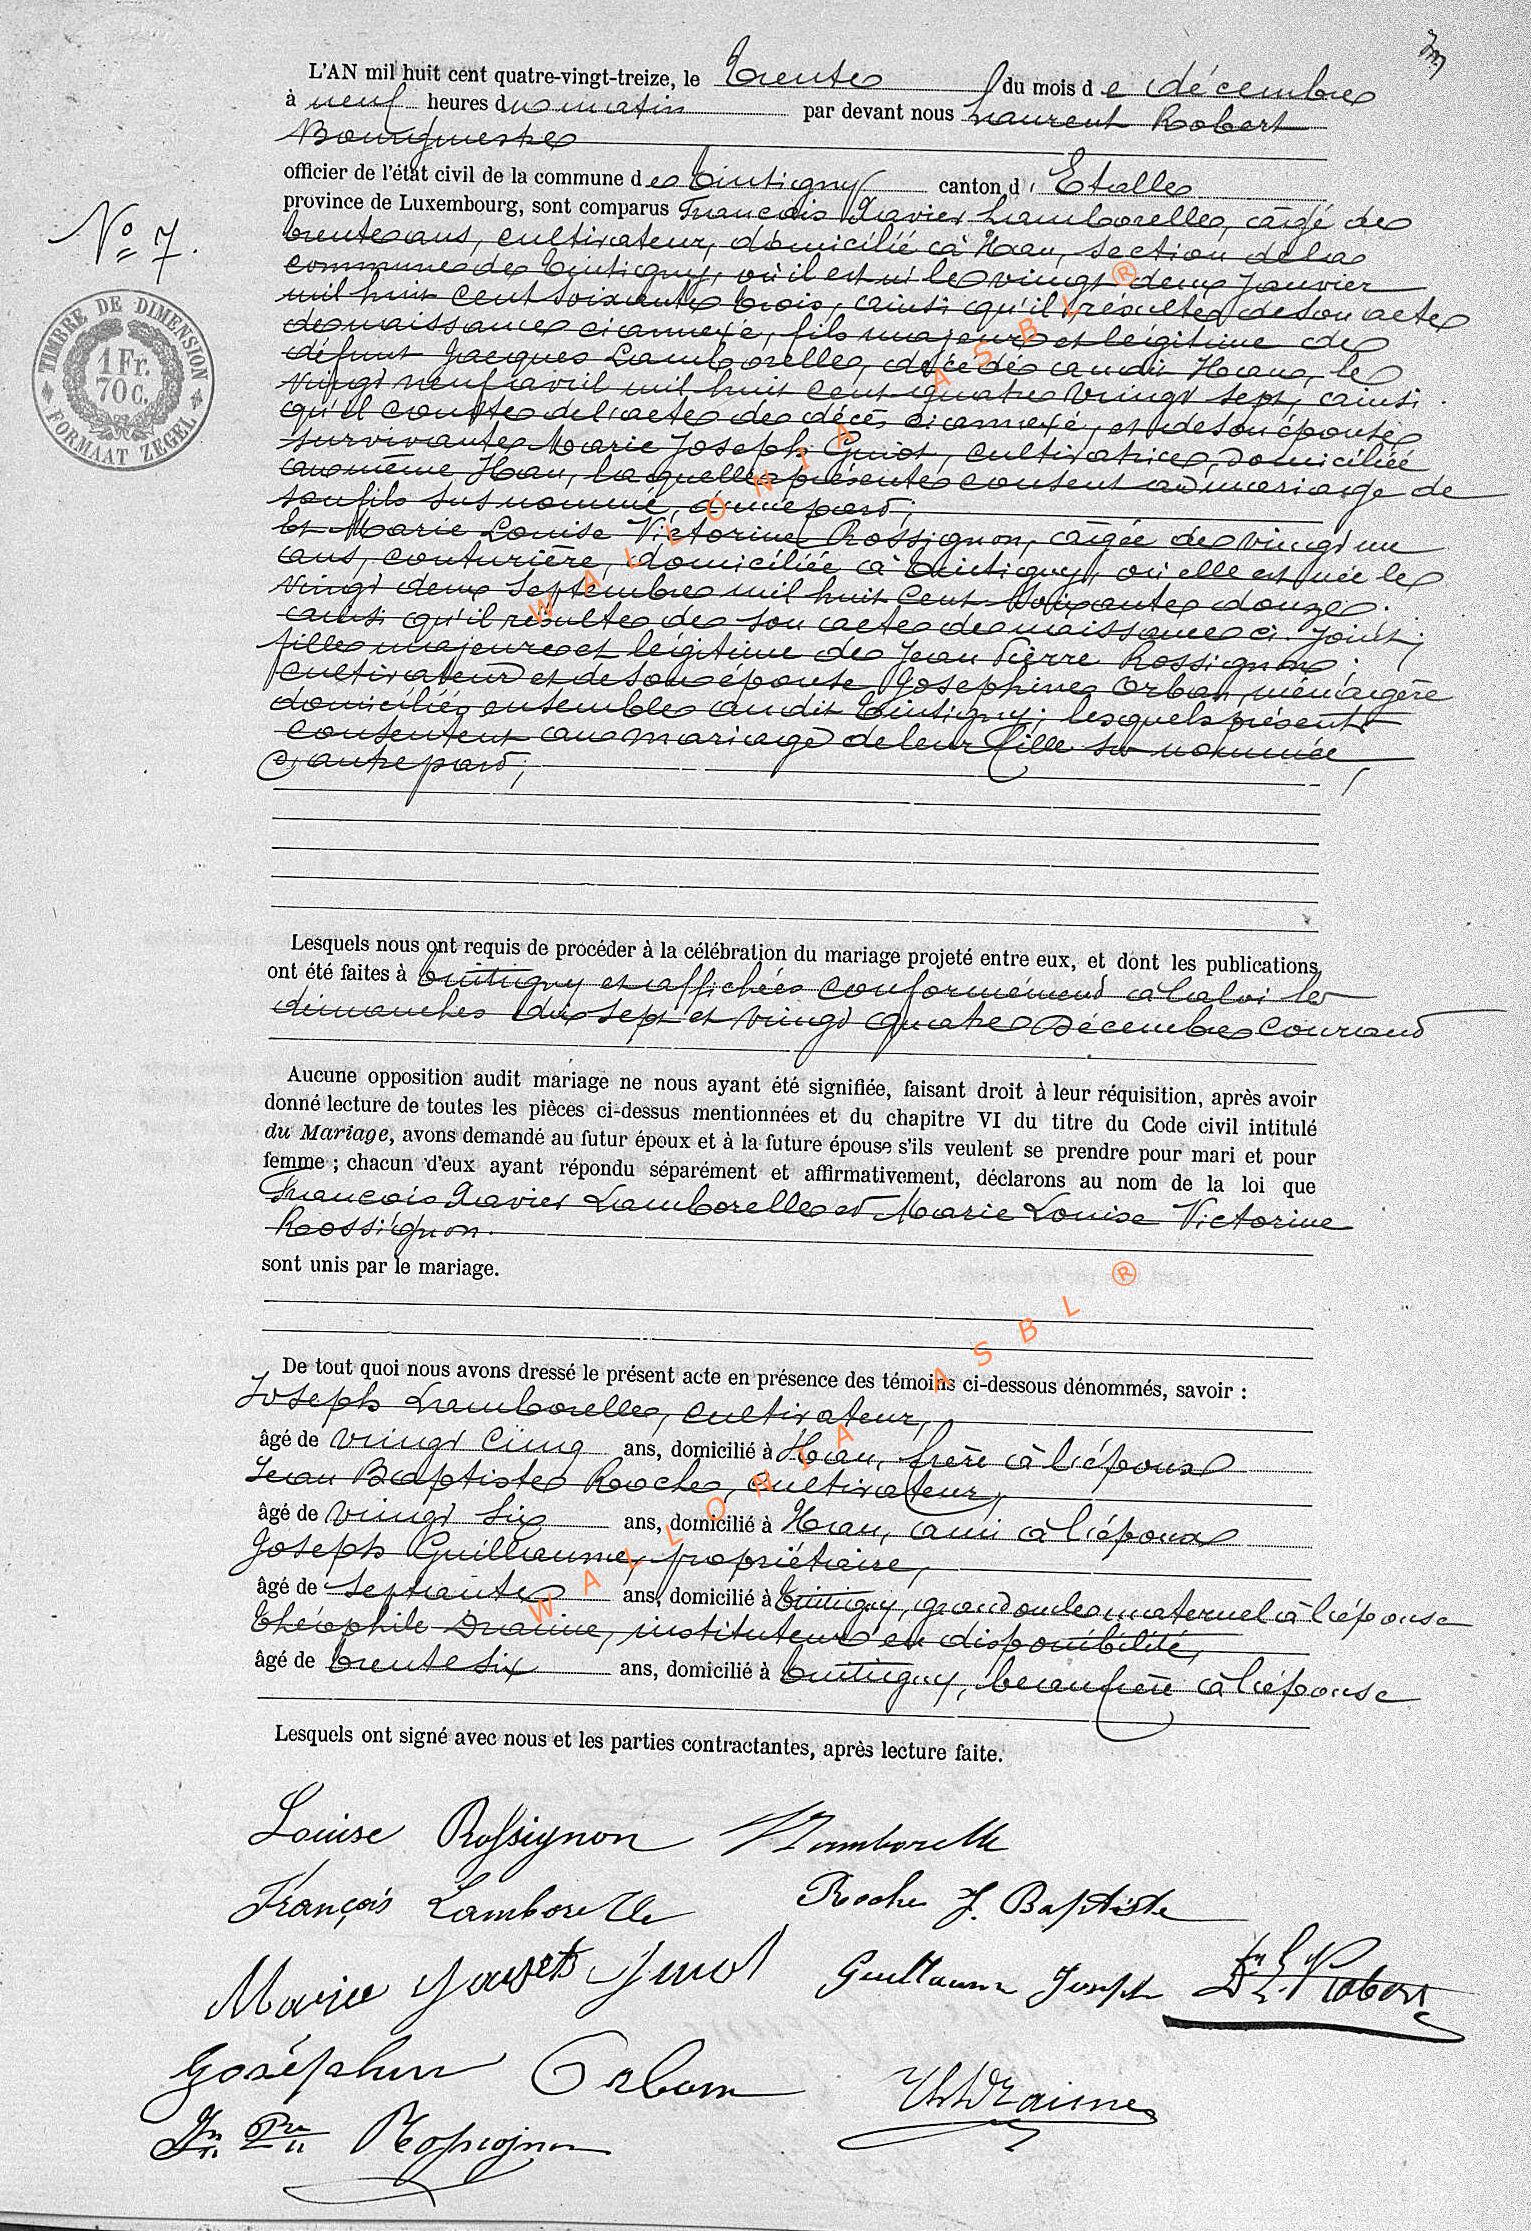 L'AN mil huit cent quatre-vingt-treize, le trente du mois de décembre
à neuf heures du matin par devant nous Laurent Robert
Bourgmestre
officier de l'état civil de la commune de Tintigny canton d' Etalle
province de Luxembourg, sont comparus François Xavier Lamborelle, âgé de
trente ans, cultivateur, domicilié à Han, section de la
commune de Tintigny, où il est né le vingt deux Janvier
mil huit cent soixante trois, ainsi qu'il résulte de son acte
de naissance ci annexé, fils majeur et légitime de
défunt Jacques Lamborelle, décédé au dit Han, le
vingt neuf avril mil huit cent quatre vingt sept, ainsi
qu'il conste de l'acte de décès ci annexé, et de son épouse
survivante Marie Joseph Guiot, cultivatrice, domiciliée
au même Han, laquelle présente consent au mariage de
son fils sus nommé, d'une part;
Et Marie Louise Victorine Rossignon, âgée de vingt un
ans, couturière, domiciliée à Tintigny, où elle est née le
vingt deux Septembre mil huit cent soixante douze.
ainsi qu'il résulte de son acte de naissance ci-joint;
fille majeure et légitime de Jean Pierre Rossignon.
cultivateur et de son épouse Joséphine Orban, ménagère
domiciliés ensemble au dit Tintigny; lesquels présents
consentent au mariage de leur fille sus nommée,
d'autre part;
N° 7.
TIMBRE DE DIMENSION
1 Fr.
70 c.
FORMAAT ZEGEL
Lesquels nous ont requis de procéder à la célébration du mariage projeté entre eux, et dont les publications
ont été faites à Tintigny et affichées conformément à la loi les
dimanches dix sept et vingt quatre Décembre courant
Aucune opposition audit mariage ne nous ayant été signifiée, faisant droit à leur réquisition, après avoir
donné lecture de toutes les pièces ci-dessus mentionnées et du chapitre VI du titre du Code civil intitulé
du Mariage, avons demandé au futur époux et à la future épouse s'ils veulent se prendre pour mari et pour
femme ; chacun d'eux ayant répondu séparément et affirmativement, déclarons au nom de la loi que
François Xavier Lamborelle et Marie Louise Victorine
Rossignon.
sont unis par le mariage.
De tout quoi nous avons dressé le présent acte en présence des témoins ci-dessous dénommés, savoir :
Joseph Lamborelle, cultivateur,
âgé de vingt cinq ans, domicilié à Han, frère à l'époux
Jean Baptiste Roche, cultivateur,
âgé de vingt six ans, domicilié à Han, ami à l'époux
Joseph Guillaume, propriétaire,
âgé de septante ans, domicilié à Tintigny, grand oncle maternel à l'épouse
Théophile Draime, instituteur en disponibilité,
âgé de trente six ans, domicilié à Tintigny, beau frère à l'épouse
Lesquels ont signé avec nous et les parties contractantes, après lecture faite.
Louise Rossignon Lamborelle
François Lamborelle Roche J. Baptiste
Marie Joseph Guiot Guillaume Joseph L. Robert
Joséphine Orban Th Draime
Jn Pre Rossignon
WALLONIA ASBL ®
WALLONIA ASBL ®